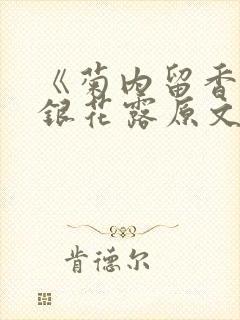 《菊内留香
銀花露原文
肯德尔